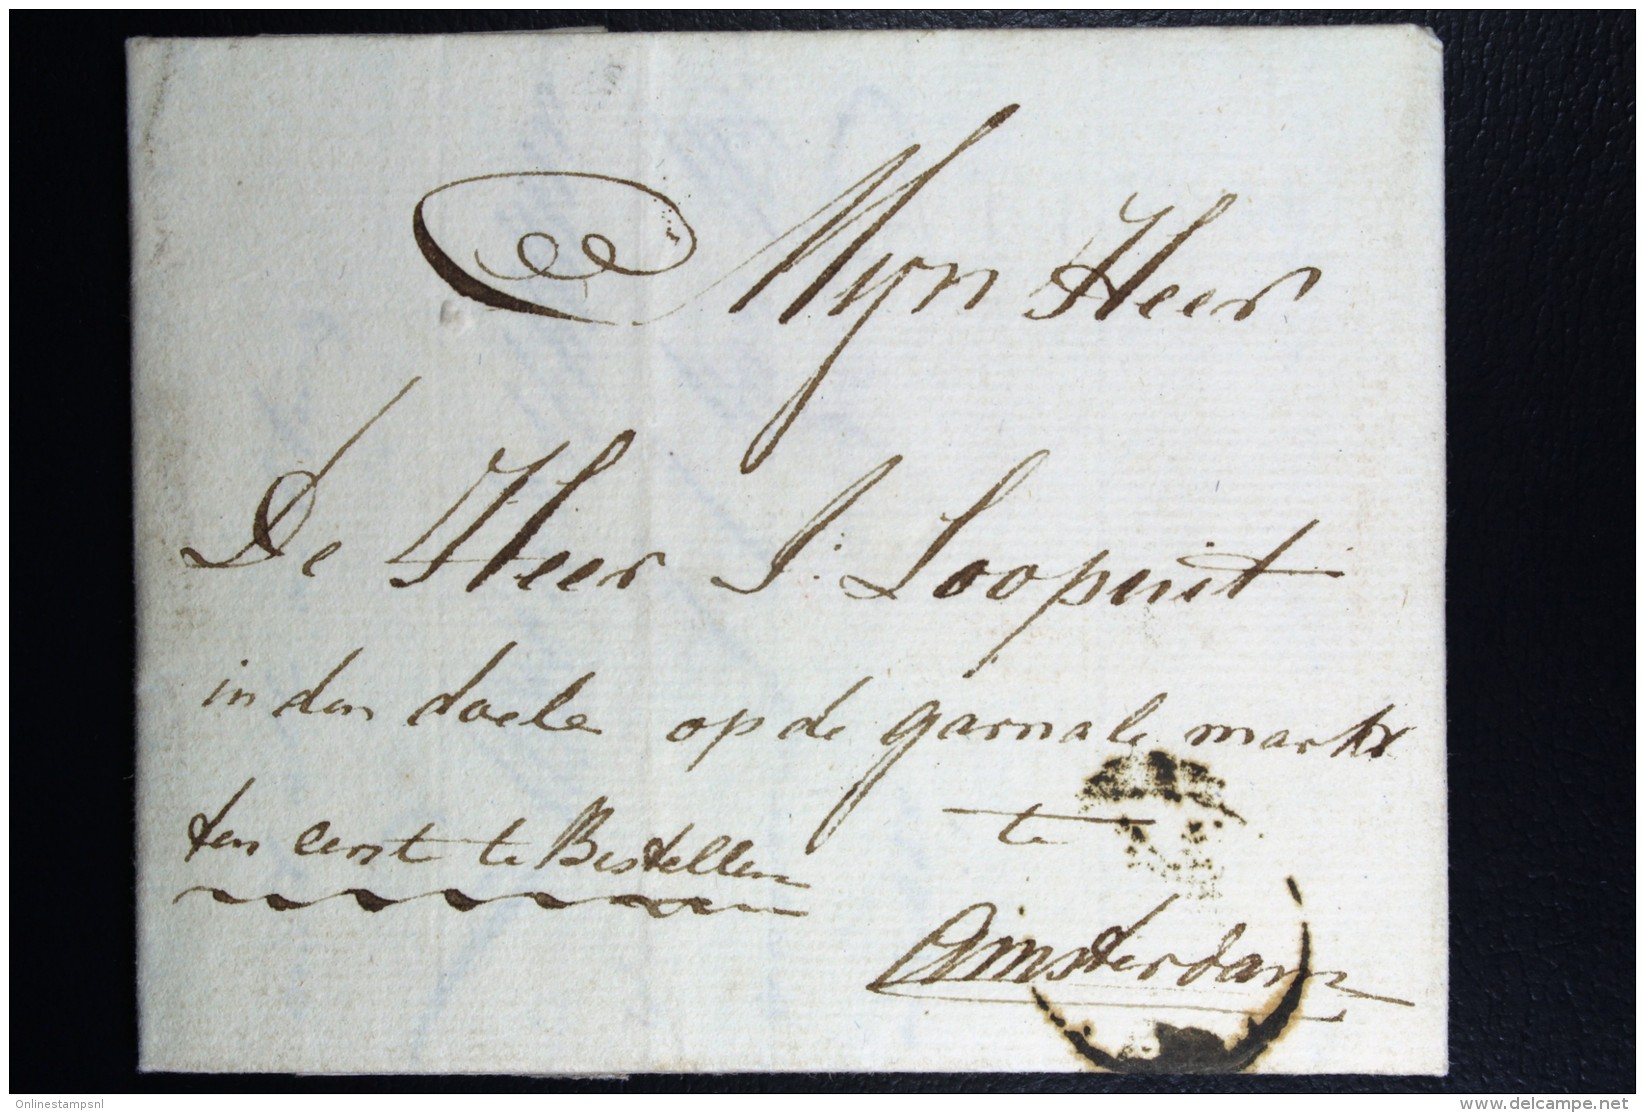 Mijn Heer
De Heer J: Loopuit
in den doele op de garnale markt
ten eerste te Bestellen
te
Amsterdam
Onlinestampsnl
www.delcampe.net